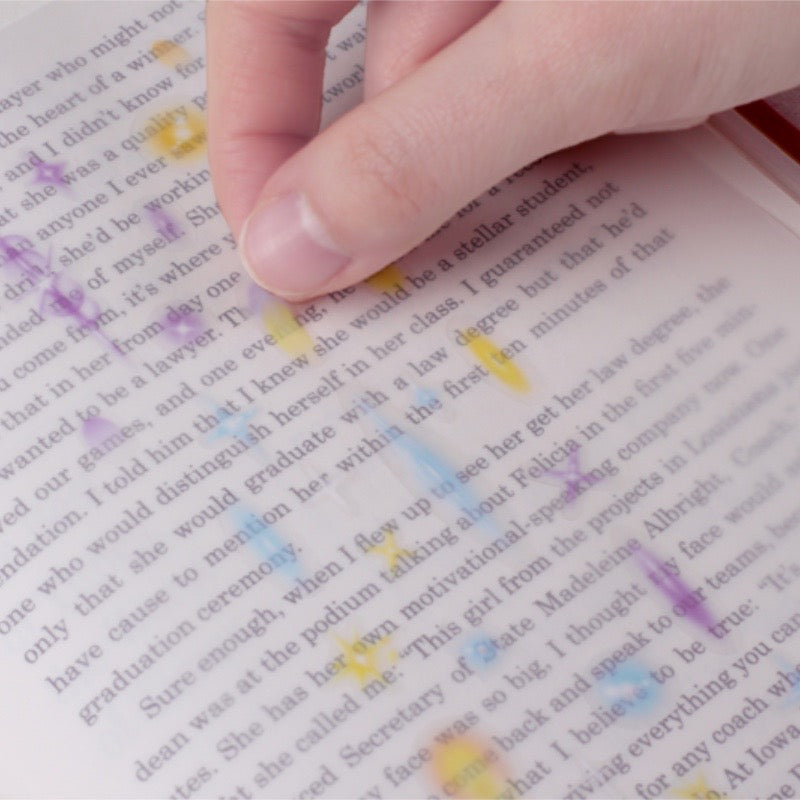 ayer who might not
the heart of a winner,
and I didn't know for
at she was a quality
in anyone I ever saw
she'd be
of myself. She
come from, it's where
that in her from day one
wanted to be a lawyer.
our games, and one evening, he for a
I told him that I knew she would be a stellar student,
one who would distinguish herself in her class. I guaranteed not
only that she would graduate with a law degree but that he'd
have cause to mention her within the first ten minutes of that
graduation ceremony.
Sure enough, when I flew up to see her get her law degree, the
dean was at the podium talking about Felicia in the first five min-
utes. She has her own motivational-speaking company now. One
she called me: "This girl from the projects in Louisiana
Secretary of State Madeleine Albright, Coach."
face was so big, I thought my face would
come back and speak to our teams,
what I believe to be true: "It's
everything you can
for any coach who
At Iowa